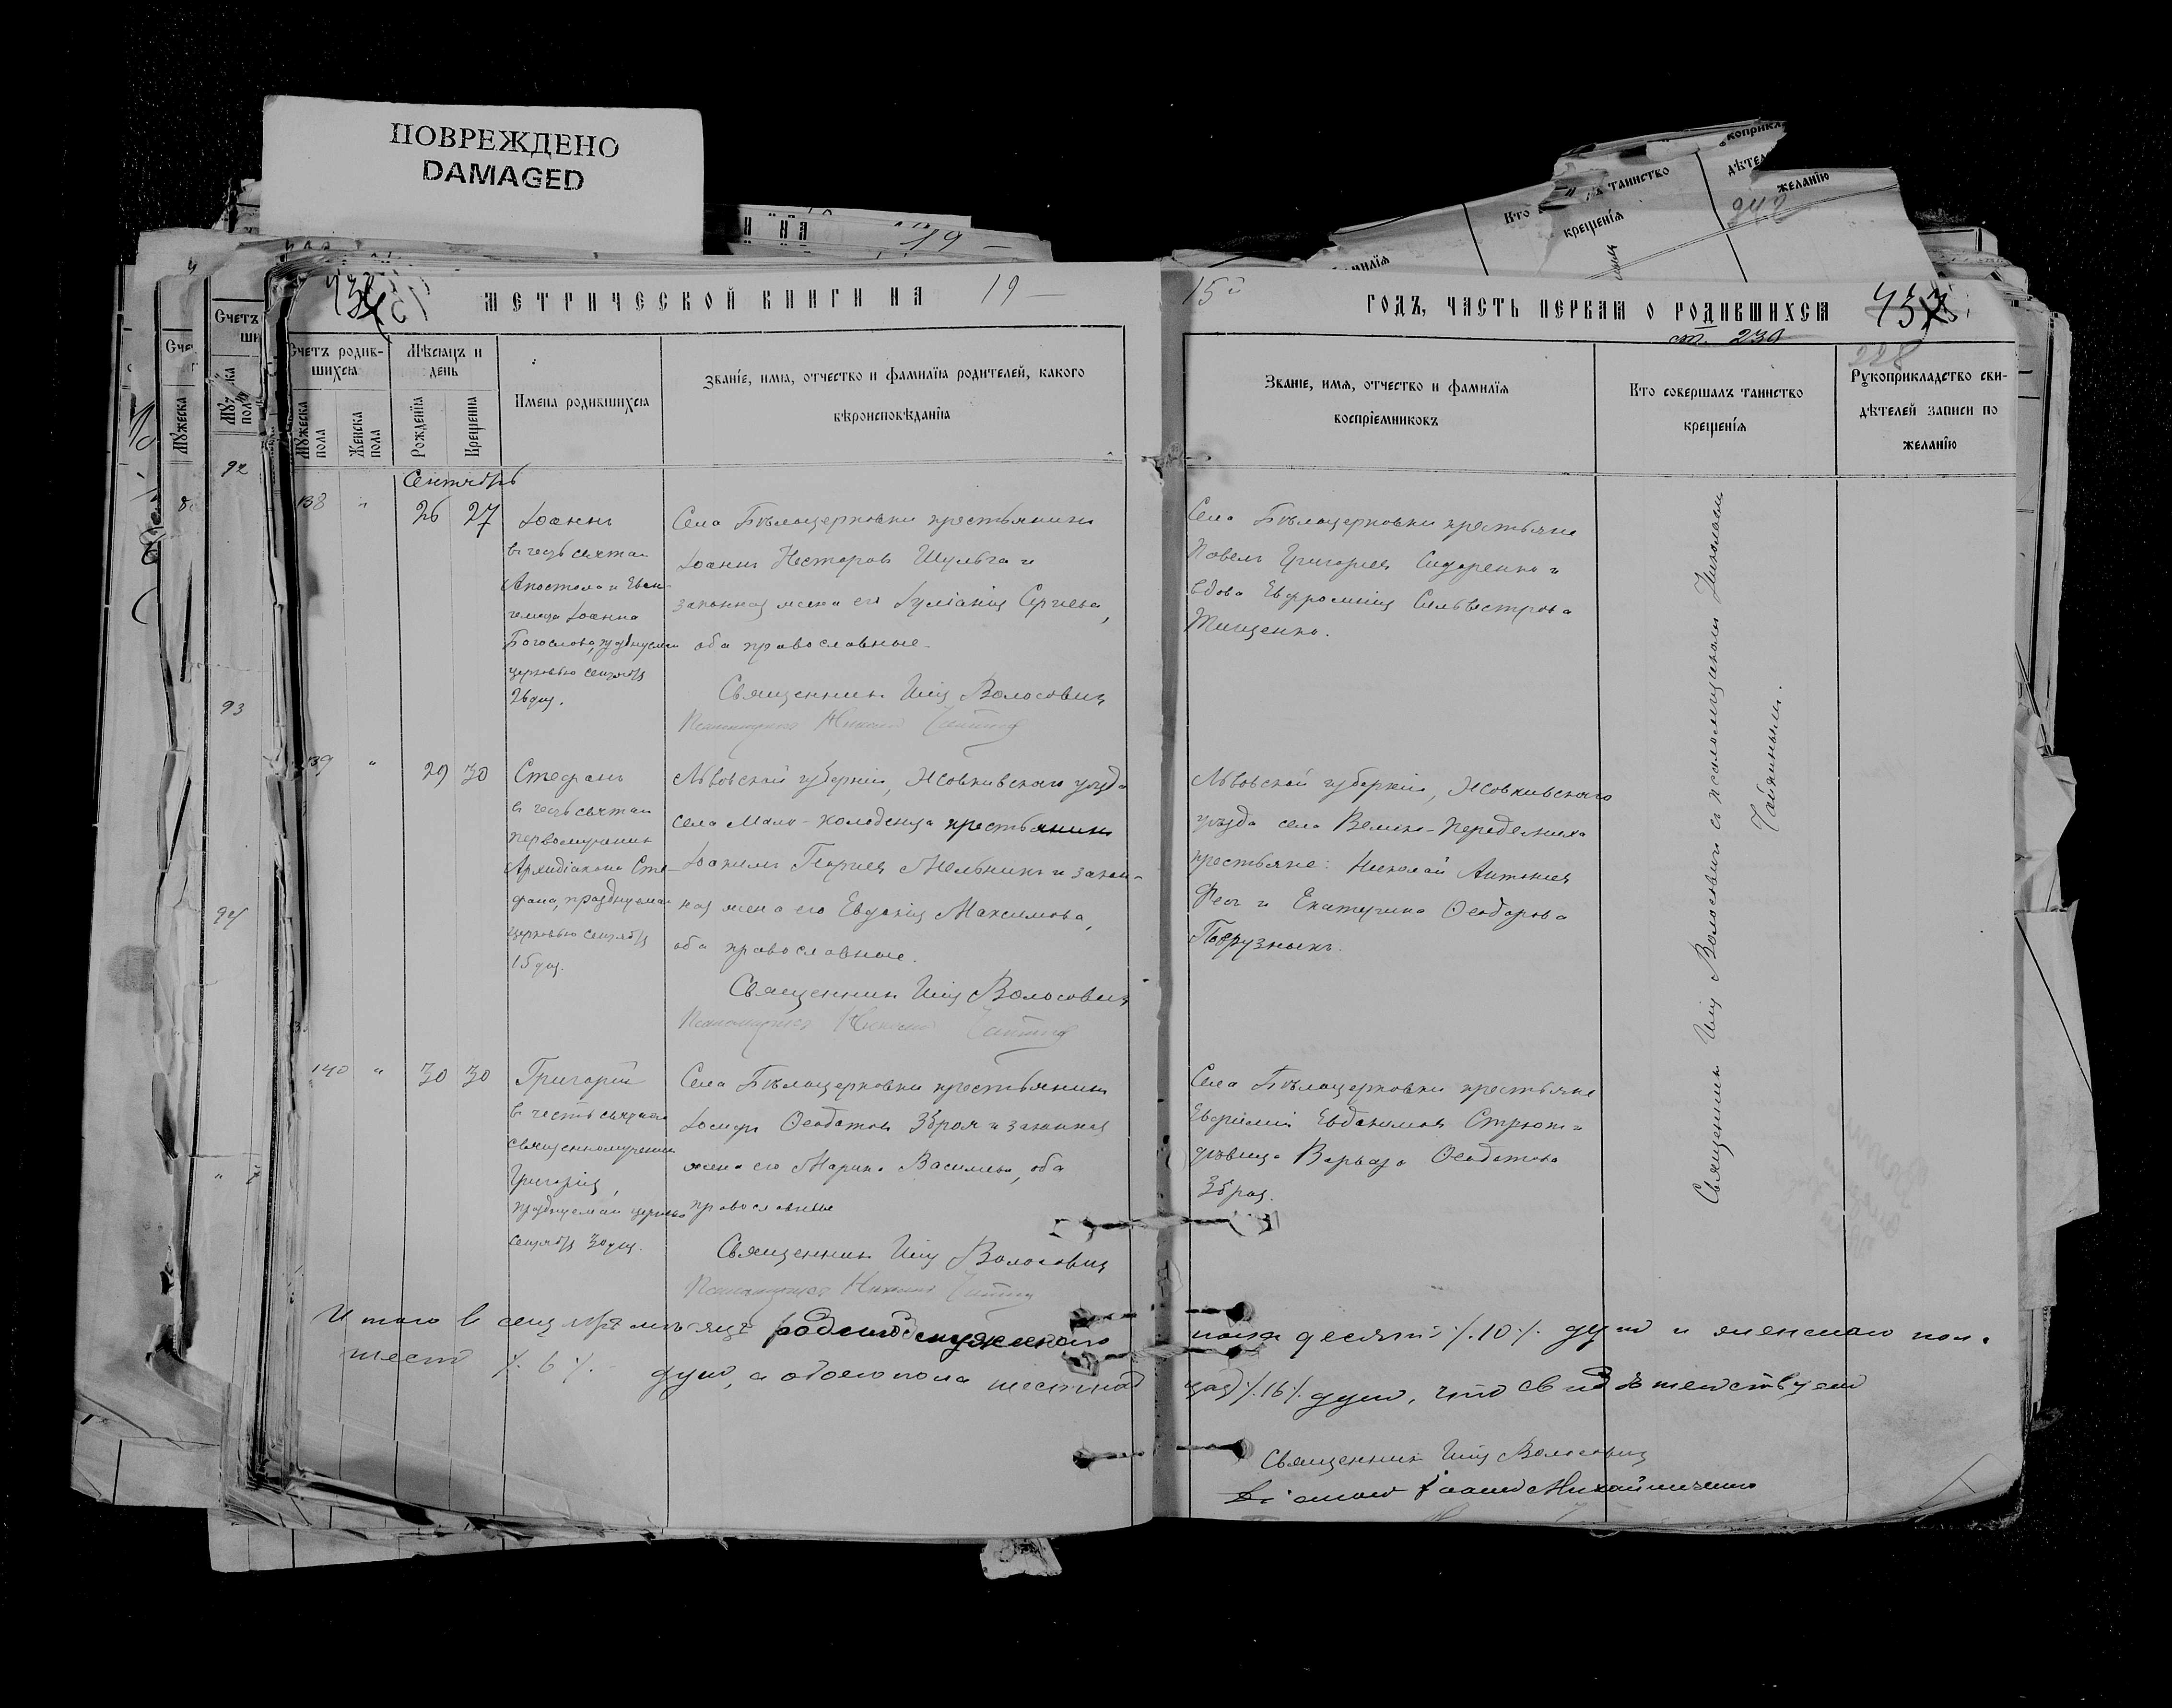 ПОВРЕЖДЕНО
DAMAGED
МЕТРИЧЕСКОЙ КНИГИ НА 19—
Счетъ родившихся
Мѣсяцъ и день
Имена родившихся
Званіе, имя, отчество и фамилія родителей, какого
вѣроисповѣданія
Мужеска пола
Женска пола
Рожденія
Крещенія
Сентябрь
138 " 26 27
Іоаннъ
въ честь святаго
Апостола и Еван-
гелиста Іоанна
Богослова, празднуемаго
церковью сентября
26 дня.
Села Бѣлоцерковки крестьянинъ
Іоаннъ Несторовъ Шульга и
законная жена его Іуліанія Сергіева,
оба православные.
Священникъ Илія Волосовичъ
Псаломщикъ Николай
139 " 29 30
Стефанъ
въ честь святаго
первомученика
Архидіакона Сте-
фана, празднуемаго
церковью сентября
15 дня.
Львовской губерніи, Жовкивскаго уѣзда
села Мало-Колоденца крестьянинъ
Іоакимъ Георгіевъ Мельникъ и закон-
ная жена его Евдокія Максимова,
оба православные.
Священникъ Илія Волосовичъ
Псаломщикъ Николай
140 " 30 30
Григорій
въ честь святаго
священномученика
Григорія,
празднуемаго церковью
сентября 30 дня.
Села Бѣлоцерковки крестьянинъ
Іосифъ Феодотовъ Зброя и законная
жена его Марина Васильева, оба
православные
Священникъ Илія Волосовичъ
Псаломщикъ Николай
15й ГОДЪ, ЧАСТЬ ПЕРВАЯ О РОДИВШИХСЯ
228
Званіе, имя, отчество и фамилія
воспріемниковъ
Кто совершалъ таинство
крещенія
Рукоприкладство сви-
дѣтелей записи по
желанію
Села Бѣлоцерковки крестьяне
Павелъ Григоріевъ Сидоренко и
вдова Евфросинія Сильвестрова
Тищенко.
Львовской губерніи, Жовкивскаго
уѣзда села Велико-Передельника
крестьяне: Николай Антоніевъ
и Екатерина Феодорова
Села Бѣлоцерковки крестьяне
Евфимій Евдокимовъ и
дѣвица Варвара Феодотова
Зброя.
Священникъ Илія Волосовичъ съ псаломщикомъ Николаемъ
Итого въ сентябрѣ мѣсяцѣ родилось мужескаго пола десять ٪10٪ душъ и женскаго пола
шесть ٪6٪ душъ, а обоего пола шестнадцать ٪16٪ душъ, что свидѣтельствуемъ
Священникъ Илія Волосовичъ